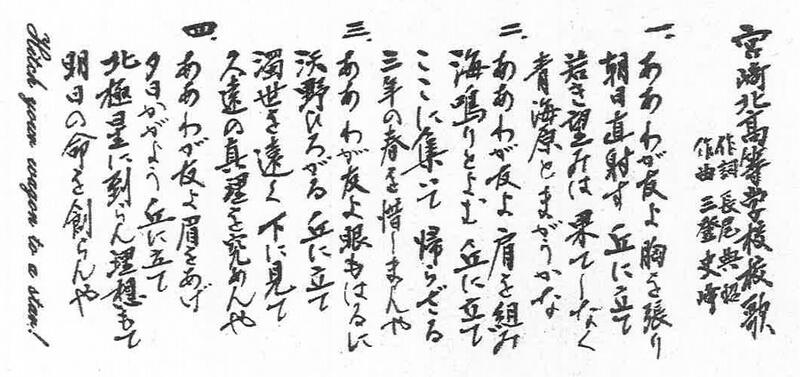 宮崎北高等学校校歌
作詞 長尾典昭
作曲 三登史
一、ああわが友よ 胸を張り
朝日直射す 丘に立て
若き望みは 果てしなく
青海原とまがうかな
二、ああわが友よ 肩を組み
海鳴りとよむ 丘に立て
ここに集いて 帰らざる
三年の春を惜しまんや
三、ああわが友よ 眼もはるに
沃野ひろがる 丘に立て
濁世を遠く 下に見て
久遠の真理を究めんや
四、ああわが友よ 眉をあげ
夕日かがよう 丘に立て
北極星に到らん理想もて
明日の命を創らんや
Hitch your wagon to a star!